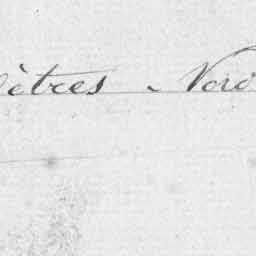 ètres . Nord